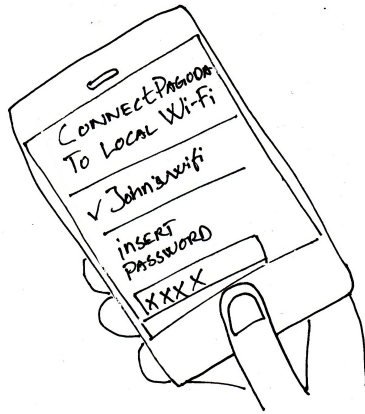 CONNECT PAGODA
TO LOCAL Wi-Fi
✓ John's wifi
iNSERT
PASSWORD
XXXX